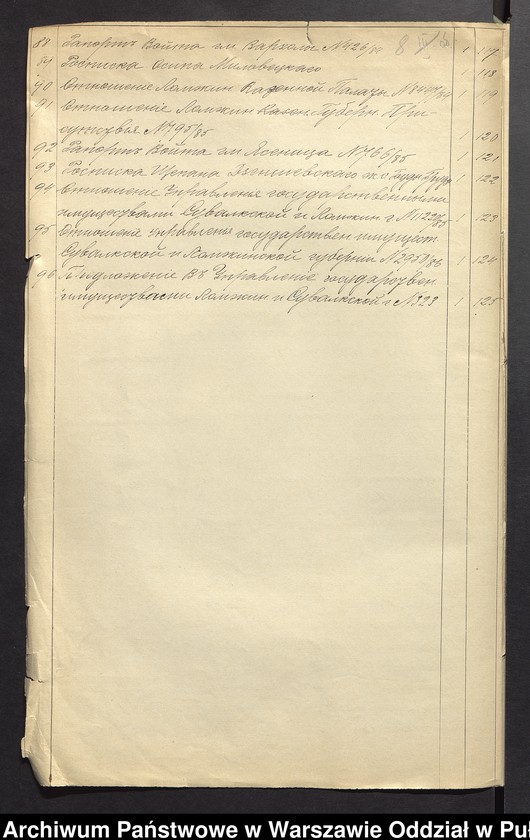 88 Рапортъ Войта гм. Вархолы N426/84 1 117
89 Росписка Осипа Миловицкаго 1 118
90 Отношеніе Ломжин Казенной Палаты N 1 119
91 Отношеніе Ломжин Казен. Губерн. При-
сутствія N795/85 1 120
92 Рапортъ Войта гм. Ясеница N766/85 1 121
93 Росписка 1 122
94 Отношеніе Управленія государственными
имуществами Сувалкской и Ломжин г. 1 123
95 Отношеніе Управленія государствен имущест.
Сувалкской и Ломжинской губерніи N2950/86 1 124
96 Предложеніе въ Управленіе государствен
имуществами Ломжин и Сувалкской г. N323 1 125
Archiwum Państwowe w Warszawie Oddział w Pu